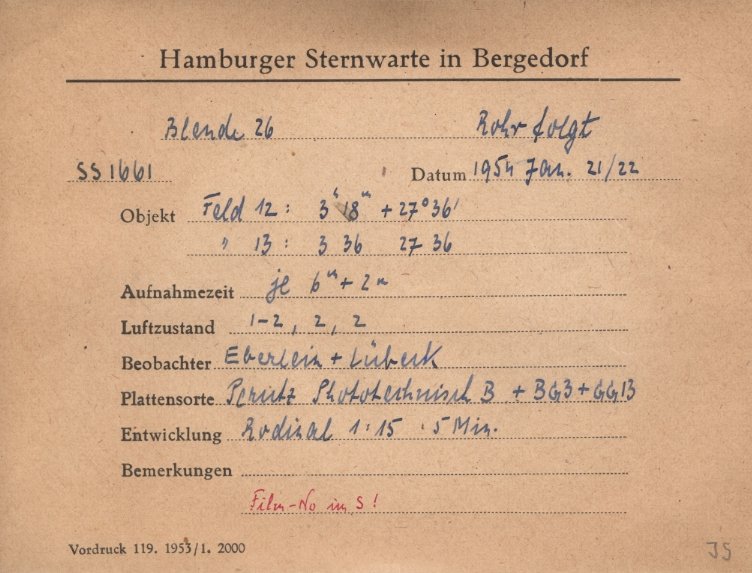 Hamburger Sternwarte in Bergedorf
Blende 26 Rohr folgt
SS 1661 Datum 1954 Jan. 21/22
Objekt Feld 12 : 3ʰ 18ᵐ + 27° 36'
" 13 : 3 36 27 36
Aufnahmezeit je 6ᵐ + 2ᵐ
Luftzustand 1-2, 2, 2
Beobachter Eberlein + Lübeck
Plattensorte Perutz Phototechnisch B + BG3 + GG13
Entwicklung Rodinal 1:15 5 Min.
Bemerkungen
Film-No in S!
Vordruck 119. 1953/1. 2000
JS